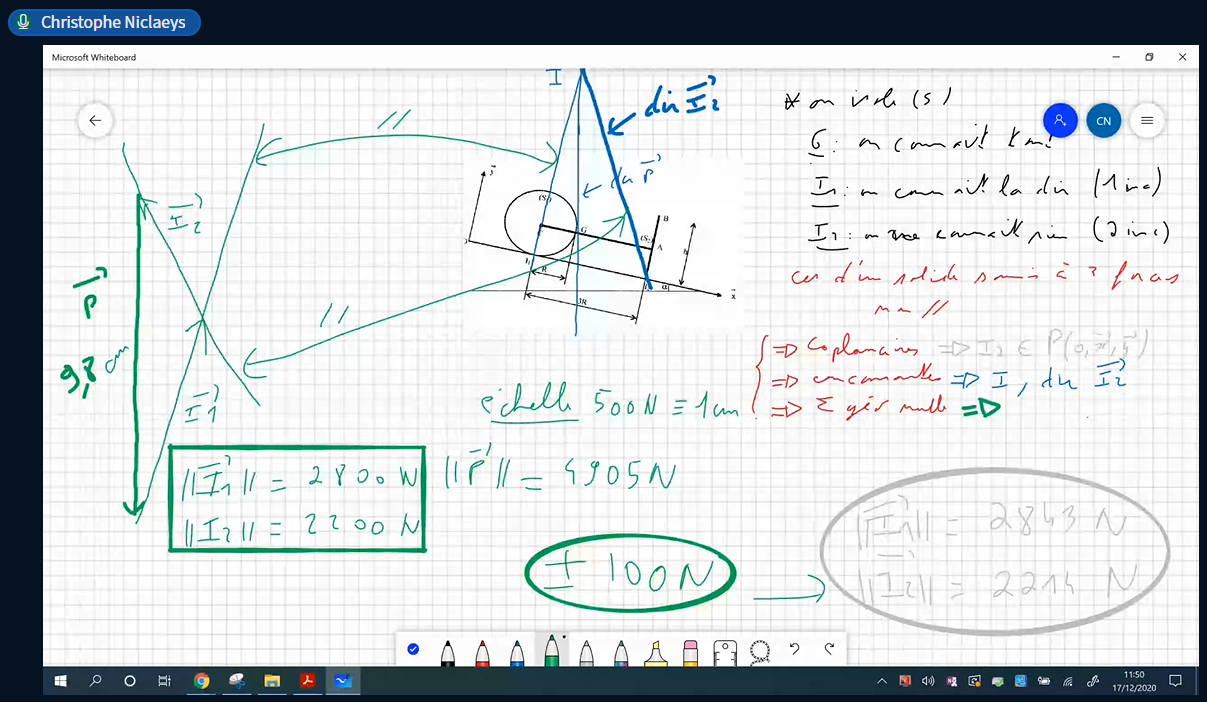 Christophe Niclaeys
Microsoft Whiteboard
CN
I
dir I₂
dir P
* on isole (S)
G : on connait tout
I₁ : on connait la dir (1 inc)
I₂ : on ne connait rien (2 inc)
cas d'un solide soumis à 3 forces
non //
=> Coplanaires => I₂ ∈ P(O, x, y)
=> concourantes => I, dir I₂
=> Σ géo nulle =>
//
//
I₂
P
9,8 cm
I₁
y
(S
G
B
(S₂)
A
h
R
3R
α
x
échelle 500N ≡ 1cm
||I₁|| = 2800 N
||I₂|| = 2200 N
||P|| = 4905 N
± 100 N
||I₁|| = 2843 N
||I₂|| = 2214 N
11:50
17/12/2020